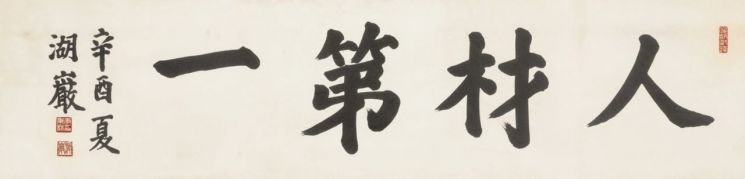 人材第一
辛酉夏
湖巖